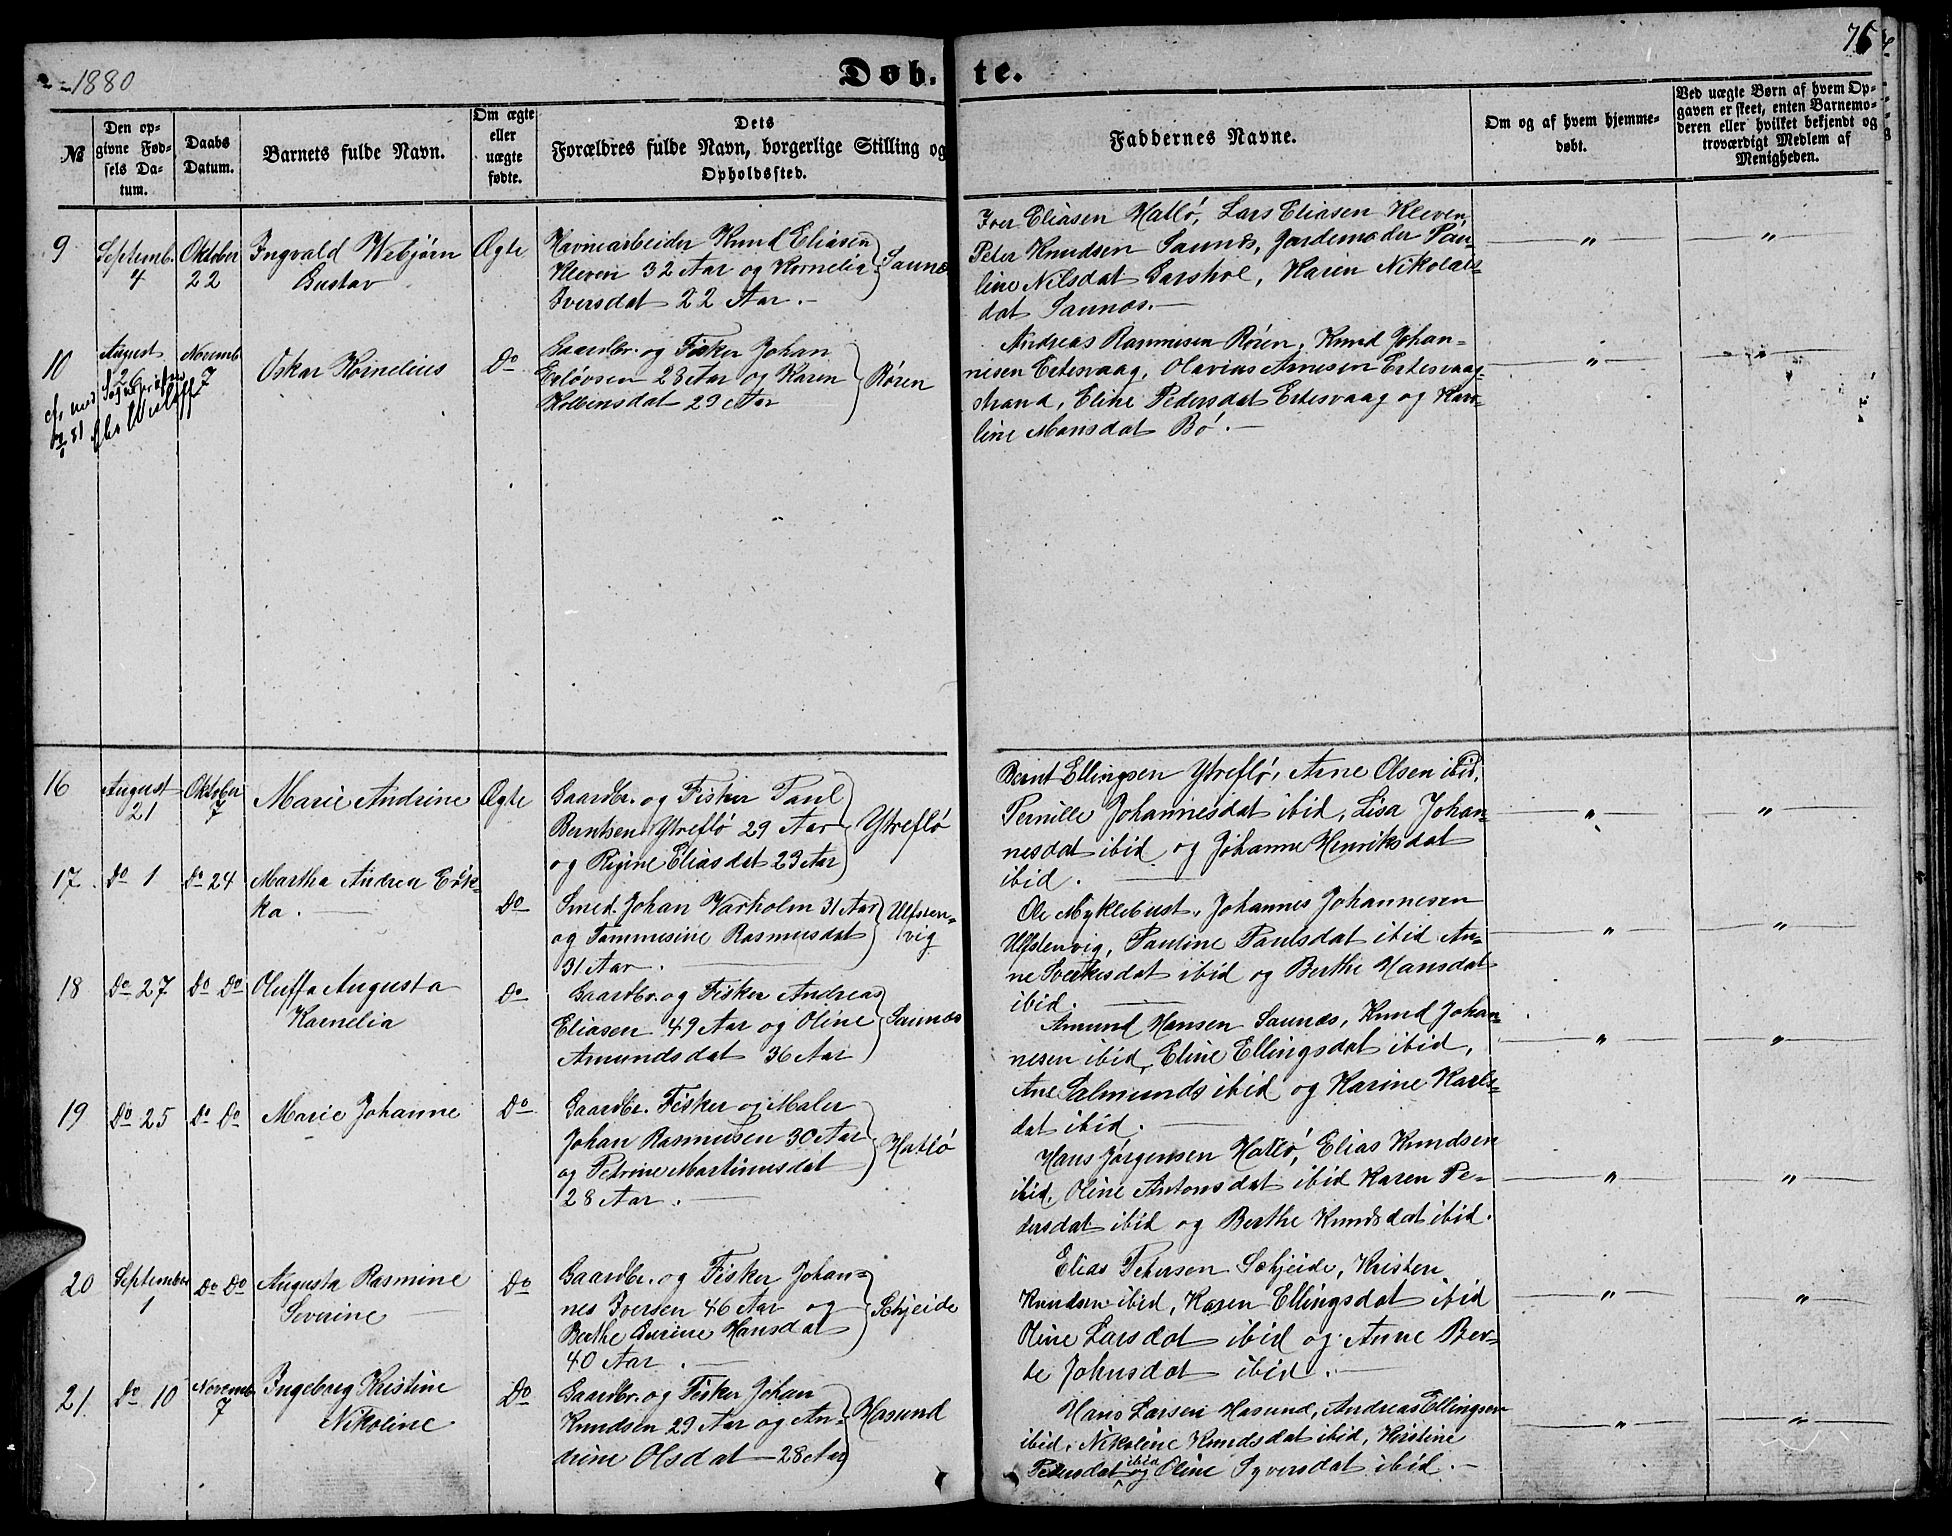 1880
Døb. te.
75
№
Den opgivne Fødsels Datum.
Daabs Datum.
Barnets fulde Navn.
Om ægte eller uægte fødte.
Dets Forældres fulde Navn, borgerlige Stilling og Opholdssted.
Faddernes Navne.
Om og af hvem hjemmedøbt.
Ved uægte Børn af hvem Opgaven er skeet, enten Barnemoderen eller hvilket bekjendt og troværdigt Medlem af Menigheden.
9
Septemb. 4
Oktober 22
Ingvald Webjørn
Gustav
Ægte
Havnearbeider Knud Eliasen
Kleven 32 Aar og Kornelia
Iversdat 22 Aar.
Saunæs
Iver Eliasen Hatlö, Lars Eliasen Kleven,
Peter Knudsen Saunæs, Jordemoder Pau-
line Nilsdat Garshol, Karen Nikolais-
dat Saunæs.
10
August 26
Novemb 7
Oskar Kornelius
Do
Gaardbr. og Fisker Johan
Enløvsen 28 Aar og Karen
Kolbensdat 29 Aar
Røren
Andreas Rasmusen Røren, Knud Johan-
nesen Ertesvaag, Olavius Arnesen Ertesvaag-
strand, Eline Pedersdat Ertesvaag og Karo-
line Monsdat Bö.
16
August 21
Oktober 7
Marie Andrine
Ægte
Gaardbr. og Fisker Paul
Berntsen Ytreflö 29 Aar
og Regine Eliasdat 23 Aar
Ytreflö
Bernt Ellingsen Ytreflö, Arne Olsen ibid,
Pernille Johannesdat ibid, Lisa Johan-
nesdat ibid og Johanne Henriksdat
ibid.
17.
Do 1
Do 24
Martha Andrea Erik-
ka.
Do
Smed. Johan Varholm 31 Aar
og Tommesine Rasmusdat
31 Aar.
Ulfsten-
vig
Ole Myklebust, Johannes Johannesen
Ulfstenvig, Pauline Paulsdat ibid An-
ne Sverkesdat ibid og Berthe Hansdat
ibid.
18
Do 27
Do Do
Oluffa Augusta
Kornelia
Do
Gaardbr. og Fisker Andreas
Eliasen 49 Aar og Oline
Amundsdat 36 Aar
Saunæs
Amund Hansen Saunæs, Knud Johan-
nesen ibid, Eline Ellingsdat ibid,
Ane Salmunds ibid og Karine Karls-
dat ibid.
19
Do 25
Do Do
Marie Johanne
Do
Gaardbr. Fisker og Maler
Johan Rasmusen 30 Aar
og Petrine Martinusdat
28 Aar.
Hatlö
Hans Jørgensen Hatlö, Elias Knudsen
ibid, Oline Antonsdat ibid Karen Pe-
dersdat ibid og Berthe Knudsdat ibid.
20
September 1
Do Do
Augusta Rasmine
Severine
Do
Gaardbr. og Fisker Johan-
nes Iversen 46 Aar og
Berthe Hansdat
40 Aar.
Schjeide
Elias Petersen Schjeide, Kristen
Knudsen ibid, Karen Ellingsdat ibid
Oline Larsdat ibid og Anne Ber-
te Johnsdat ibid.
21.
Do 10
Novemb. 7
Ingeborg Kristine
Nikoline
Do
Gaardbr. og Fisker Johan
Knudsen 29 Aar og An-
drine Olsdat 28 Aar
Hasund
Hans Larsen Hasund, Andreas Ellingsen
ibid, Nikoline Knudsdat ibid, Kristine
Pedersdat ibid og Oline Syversdat ibid.